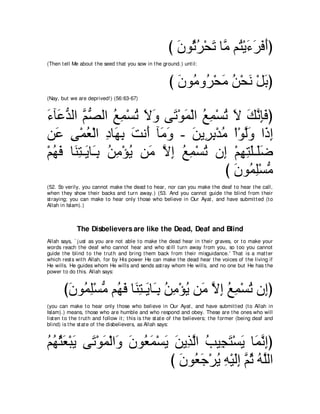 ﴿ أَفَرَءَيْتُم مَّا تَحْرُثُونَ ﴾
(Then tell Me about the seed that you sow in the ground.) until:
﴿ بَلْ نَحْنُ مَحْرُومُونَ ﴾
(Nay, but we are deprived!) (56:63-67)
﴿فَإِنَّكَ لاَ تُسْمِعُ الْمَوْتَى وَلاَ تُسْمِعُ الصُّمَّ الدُّعَآءَ
إِذَا وَلَّوْاْ مُدْبِرِينَ - وَمَآ أَنتَ بِهَادِ الْعُمْىِ عَن
ضَلَـلَتِهِمْ إِن تُسْمِعُ إِلاَّ مَن يُؤْمِنُ بِـَايَـتِنَا فَهُمْ
مُّسْلِمُونَ ﴾
(52. So verily, you cannot make the dead to hear, nor can you make the deaf to hear the call, when they show their backs and turn away.) (53. And you cannot guide the blind from their straying; you can make to hear only those who believe in Our Ayat, and have submitted (to Allah in Islam).)
The Disbelievers are like the Dead, Deaf and Blind
Allah says, `just as you are not able to make the dead hear in their graves, or to make your words reach the deaf who cannot hear and who still turn away from you, so too you cannot guide the blind to the truth and bring them back from their misguidance.' That is a matter which rests with Allah, for by His power He can make the dead hear the voices of the living if He wills. He guides whom He wills and sends astray whom He wills, and no one but He has the power to do this. Allah says:
﴿إِن تُسْمِعُ إِلاَّ مَن يُؤْمِنُ بِـَايَـتِنَا فَهُمْ مُّسْلِمُونَ﴾
(you can make to hear only those who believe in Our Ayat, and have submitted (to Allah in Islam).) means, those who are humble and who respond and obey. These are the ones who will listen to the truth and follow it; this is the state of the believers; the former (being deaf and blind) is the state of the disbelievers, as Allah says:
﴿إِنَّمَا يَسْتَجِيبُ الَّذِينَ يَسْمَعُونَ وَالْمَوْتَى يَبْعَثُهُمُ
اللَّهُ ثُمَّ إِلَيْهِ يُرْجَعُونَ ﴾